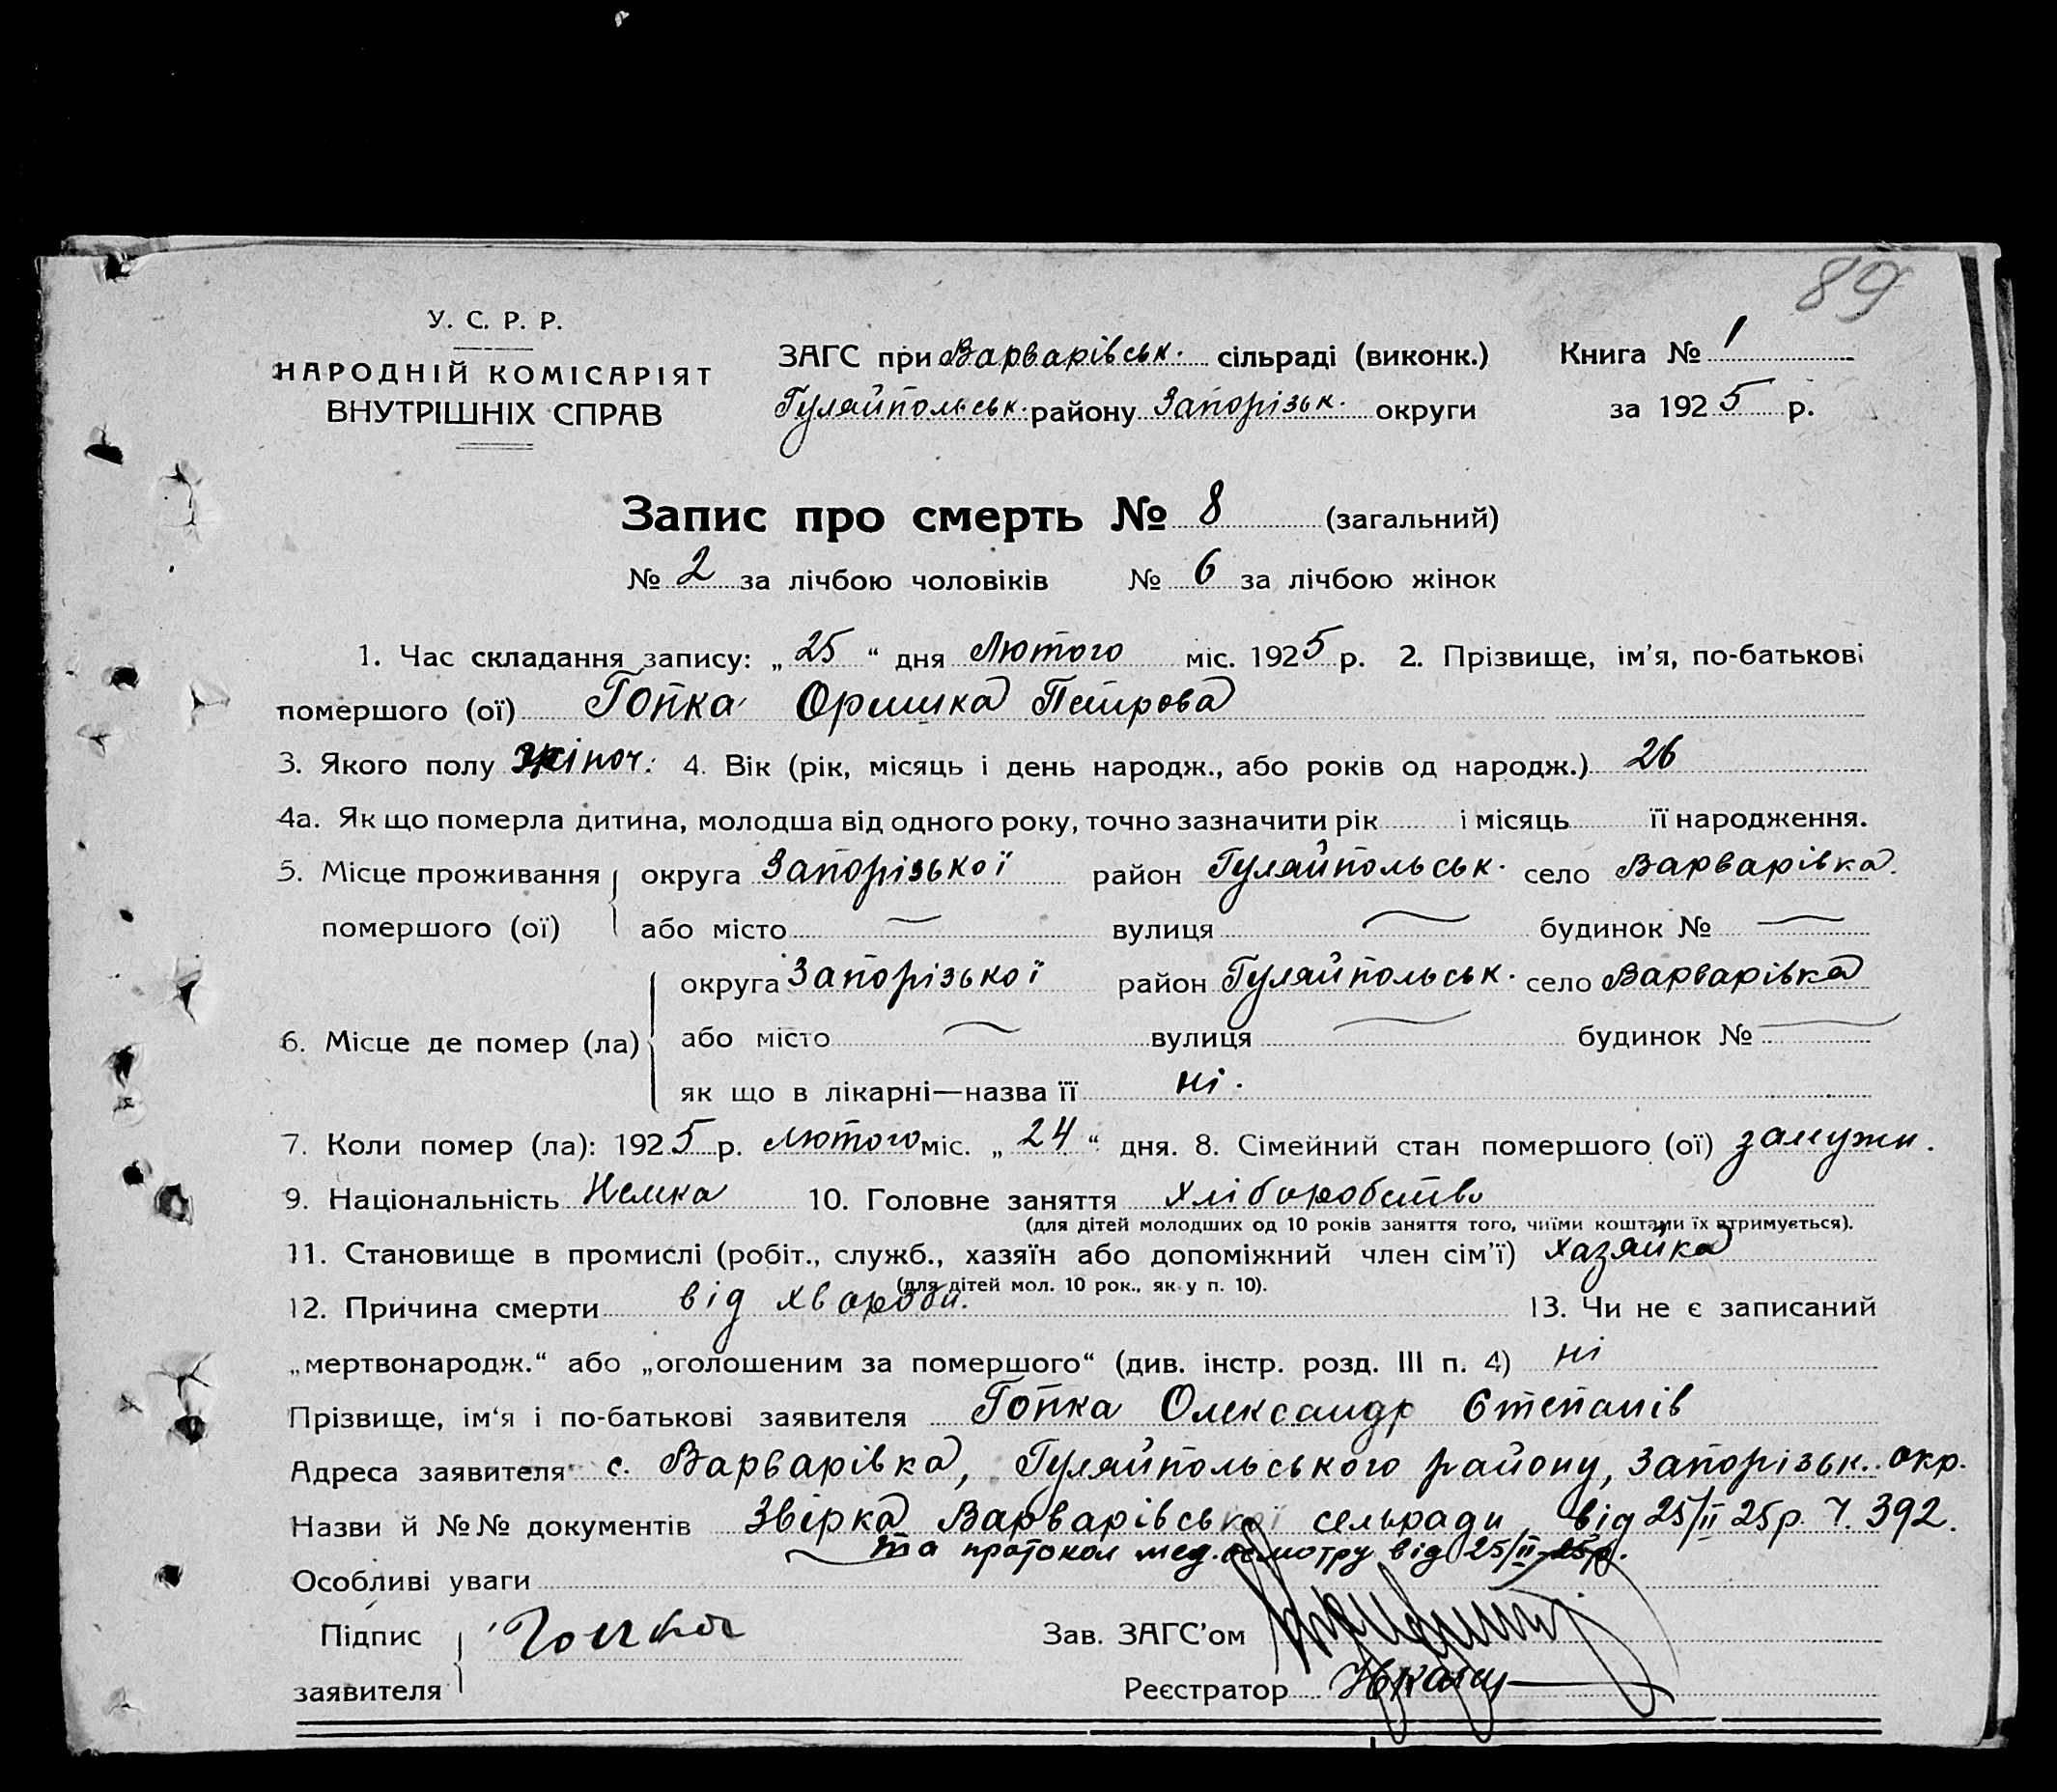 89
У. С. Р. Р.
НАРОДНІЙ КОМІСАРІЯТ
ВНУТРІШНІХ СПРАВ
ЗАГС при Варварівськ. сільраді (виконк.) Книга № 1
Гуляйпольськ. району Запорізьк. округи за 1925 р.
Запис про смерть № 8 (загальний)
№ 2 за лічбою чоловіків № 6 за лічбою жінок
1. Час складання запису: „25“ дня Лютого міс. 1925 р. 2. Прізвище, ім'я, по-батькові
помершого (ої) Гопка Оришка Петрова
3. Якого полу жіноч. 4. Вік (рік, місяць і день народж., або років од народж.) 26
4а. Як що померла дитина, молодша від одного року, точно зазначити рік і місяць її народження.
5. Місце проживання округа Запорізької район Гуляйпольськ. село Варварівка.
помершого (ої) або місто — вулиця — будинок № —
округа Запорізької район Гуляйпольськ. село Варварівка
6. Місце де помер (ла) або місто — вулиця — будинок № —
як що в лікарні—назва її ні.
7. Коли помер (ла): 1925 р. Лютого міс. „24“ дня. 8. Сімейний стан помершого (ої) замужн.
9. Національність Немка 10. Головне заняття хліборобство
(для дітей молодших од 10 років заняття того, чиїми коштами їх втримується).
11. Становище в промислі (робіт., служб., хазяїн або допоміжний член сім'ї) хазяйка
(для дітей мол. 10 рок., як у п. 10).
12. Причина смерти від хвороби. 13. Чи не є записаний
„мертвонародж.“ або „оголошеним за помершого“ (див. інстр. розд. III п. 4) ні
Прізвище, ім'я і по-батькові заявителя Гопка Олександр Степанів
Адреса заявителя с. Варварівка, Гуляйпольського району, Запорізьк. окр.
Назви й №№ документів Звірка Варварівської сельради від 25/II 25р. Ч. 392.
та протокол мед. осмотру від 25/II-25р.
Особливі уваги
Підпис Гопка Зав. ЗАГС'ом
заявителя Реєстратор